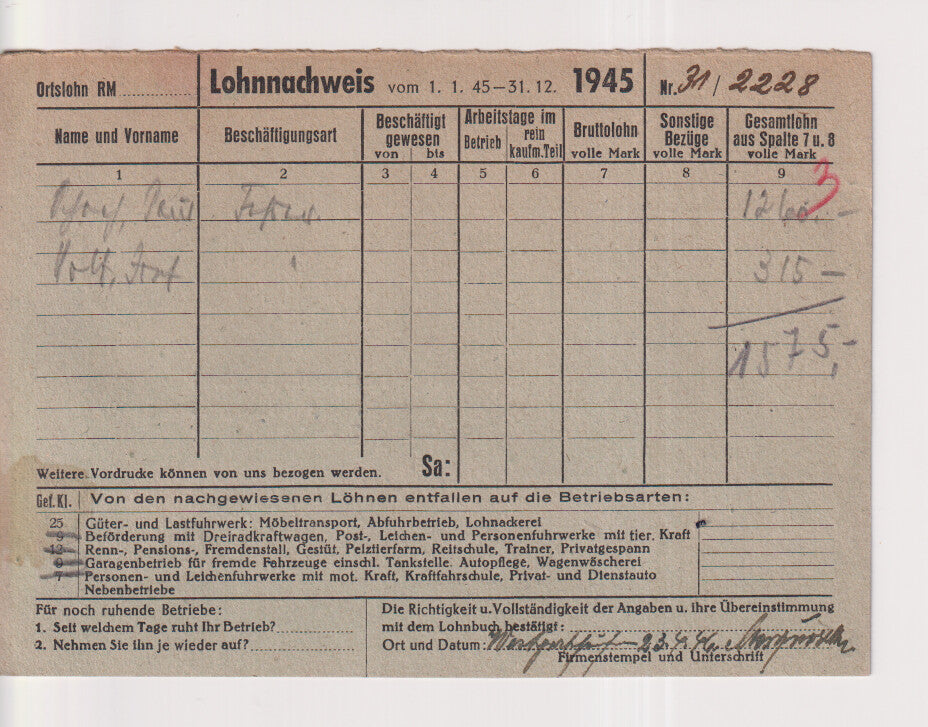 Ortslohn RM
Lohnnachweis vom 1. 1. 45–31. 12. 1945
Nr. 31 / 2228
Name und Vorname
Beschäftigungsart
Beschäftigt gewesen
von bis
Arbeitstage im
Betrieb
rein kaufm. Teil
Bruttolohn
volle Mark
Sonstige Bezüge
volle Mark
Gesamtlohn
aus Spalte 7 u. 8
volle Mark
1 2 3 4 5 6 7 8 9
3
1260.–
315–
1575,–
Weitere Vordrucke können von uns bezogen werden.
Sa:
Gef. Kl. Von den nachgewiesenen Löhnen entfallen auf die Betriebsarten:
25 Güter- und Lastfuhrwerk: Möbeltransport, Abfuhrbetrieb, Lohnackerei
9 Beförderung mit Dreiradkraftwagen, Post-, Leichen- und Personenfuhrwerke mit tier. Kraft
12 Renn-, Pensions-, Fremdenstall, Gestüt, Pelztierfarm, Reitschule, Trainer, Privatgespann
Garagenbetrieb für fremde Fahrzeuge einschl. Tankstelle. Autopflege, Wagenwäscherei
7 Personen- und Leichenfuhrwerke mit mot. Kraft, Kraftfahrschule, Privat- und Dienstauto
Nebenbetriebe
Für noch ruhende Betriebe:
1. Seit welchem Tage ruht Ihr Betrieb?
2. Nehmen Sie ihn je wieder auf?
Die Richtigkeit u. Vollständigkeit der Angaben u. ihre Übereinstimmung
mit dem Lohnbuch bestätigt:
Ort und Datum: 23.4.46
Firmenstempel und Unterschrift